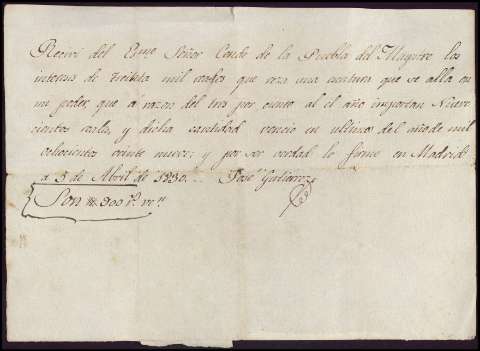 Recivi del Exmo Señor Conde de la Puebla del Maestre los
intereses de treinta mil reales que reza una escritura que se alla en
mi poder, que á razon del tres por ciento al el año importan Nueve
cientos reales, y dicha cantidad vencio en ultimos del año de mil
ochocientos veinte nueve; y por ser verdad lo firme en Madrid
a 5 de Abril de 1830. Josef Gutierrez
Son rs. 900 rs. vn.